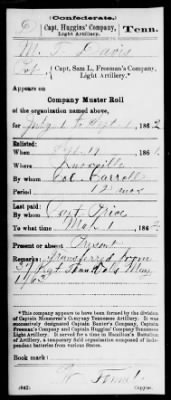 (Confederate.)
Capt. Huggins' Company,
Light Artillery.
Tenn.
M. T. Davis
Pvt, Capt. Sam L. Freeman's Company,
Light Artillery.*
Appears on
Company Muster Roll
of the organization named above,
for July 1 to Sept 1, 186 2
Enlisted:
When Sept. 19, 186 1
Where Knoxville
By whom Col. Carroll
Period 12 mos
Last paid:
By whom Capt. Price
To what time Mch 1, 186 2
Present or absent Present
Remarks: Transferred from
Regt Tenn Vols
*This company appears to have been formed by the division
of Captain Monserrat's Company Tennessee Artillery. It was
successively designated Captain Baxter's Company, Captain
Freeman's Company and Captain Huggins' Company Tennessee
Light Artillery. It served for a time in Hamilton's Battalion
of Artillery, a temporary field organization composed of independent
batteries from various States.
Book mark:
(642)
Copyist.